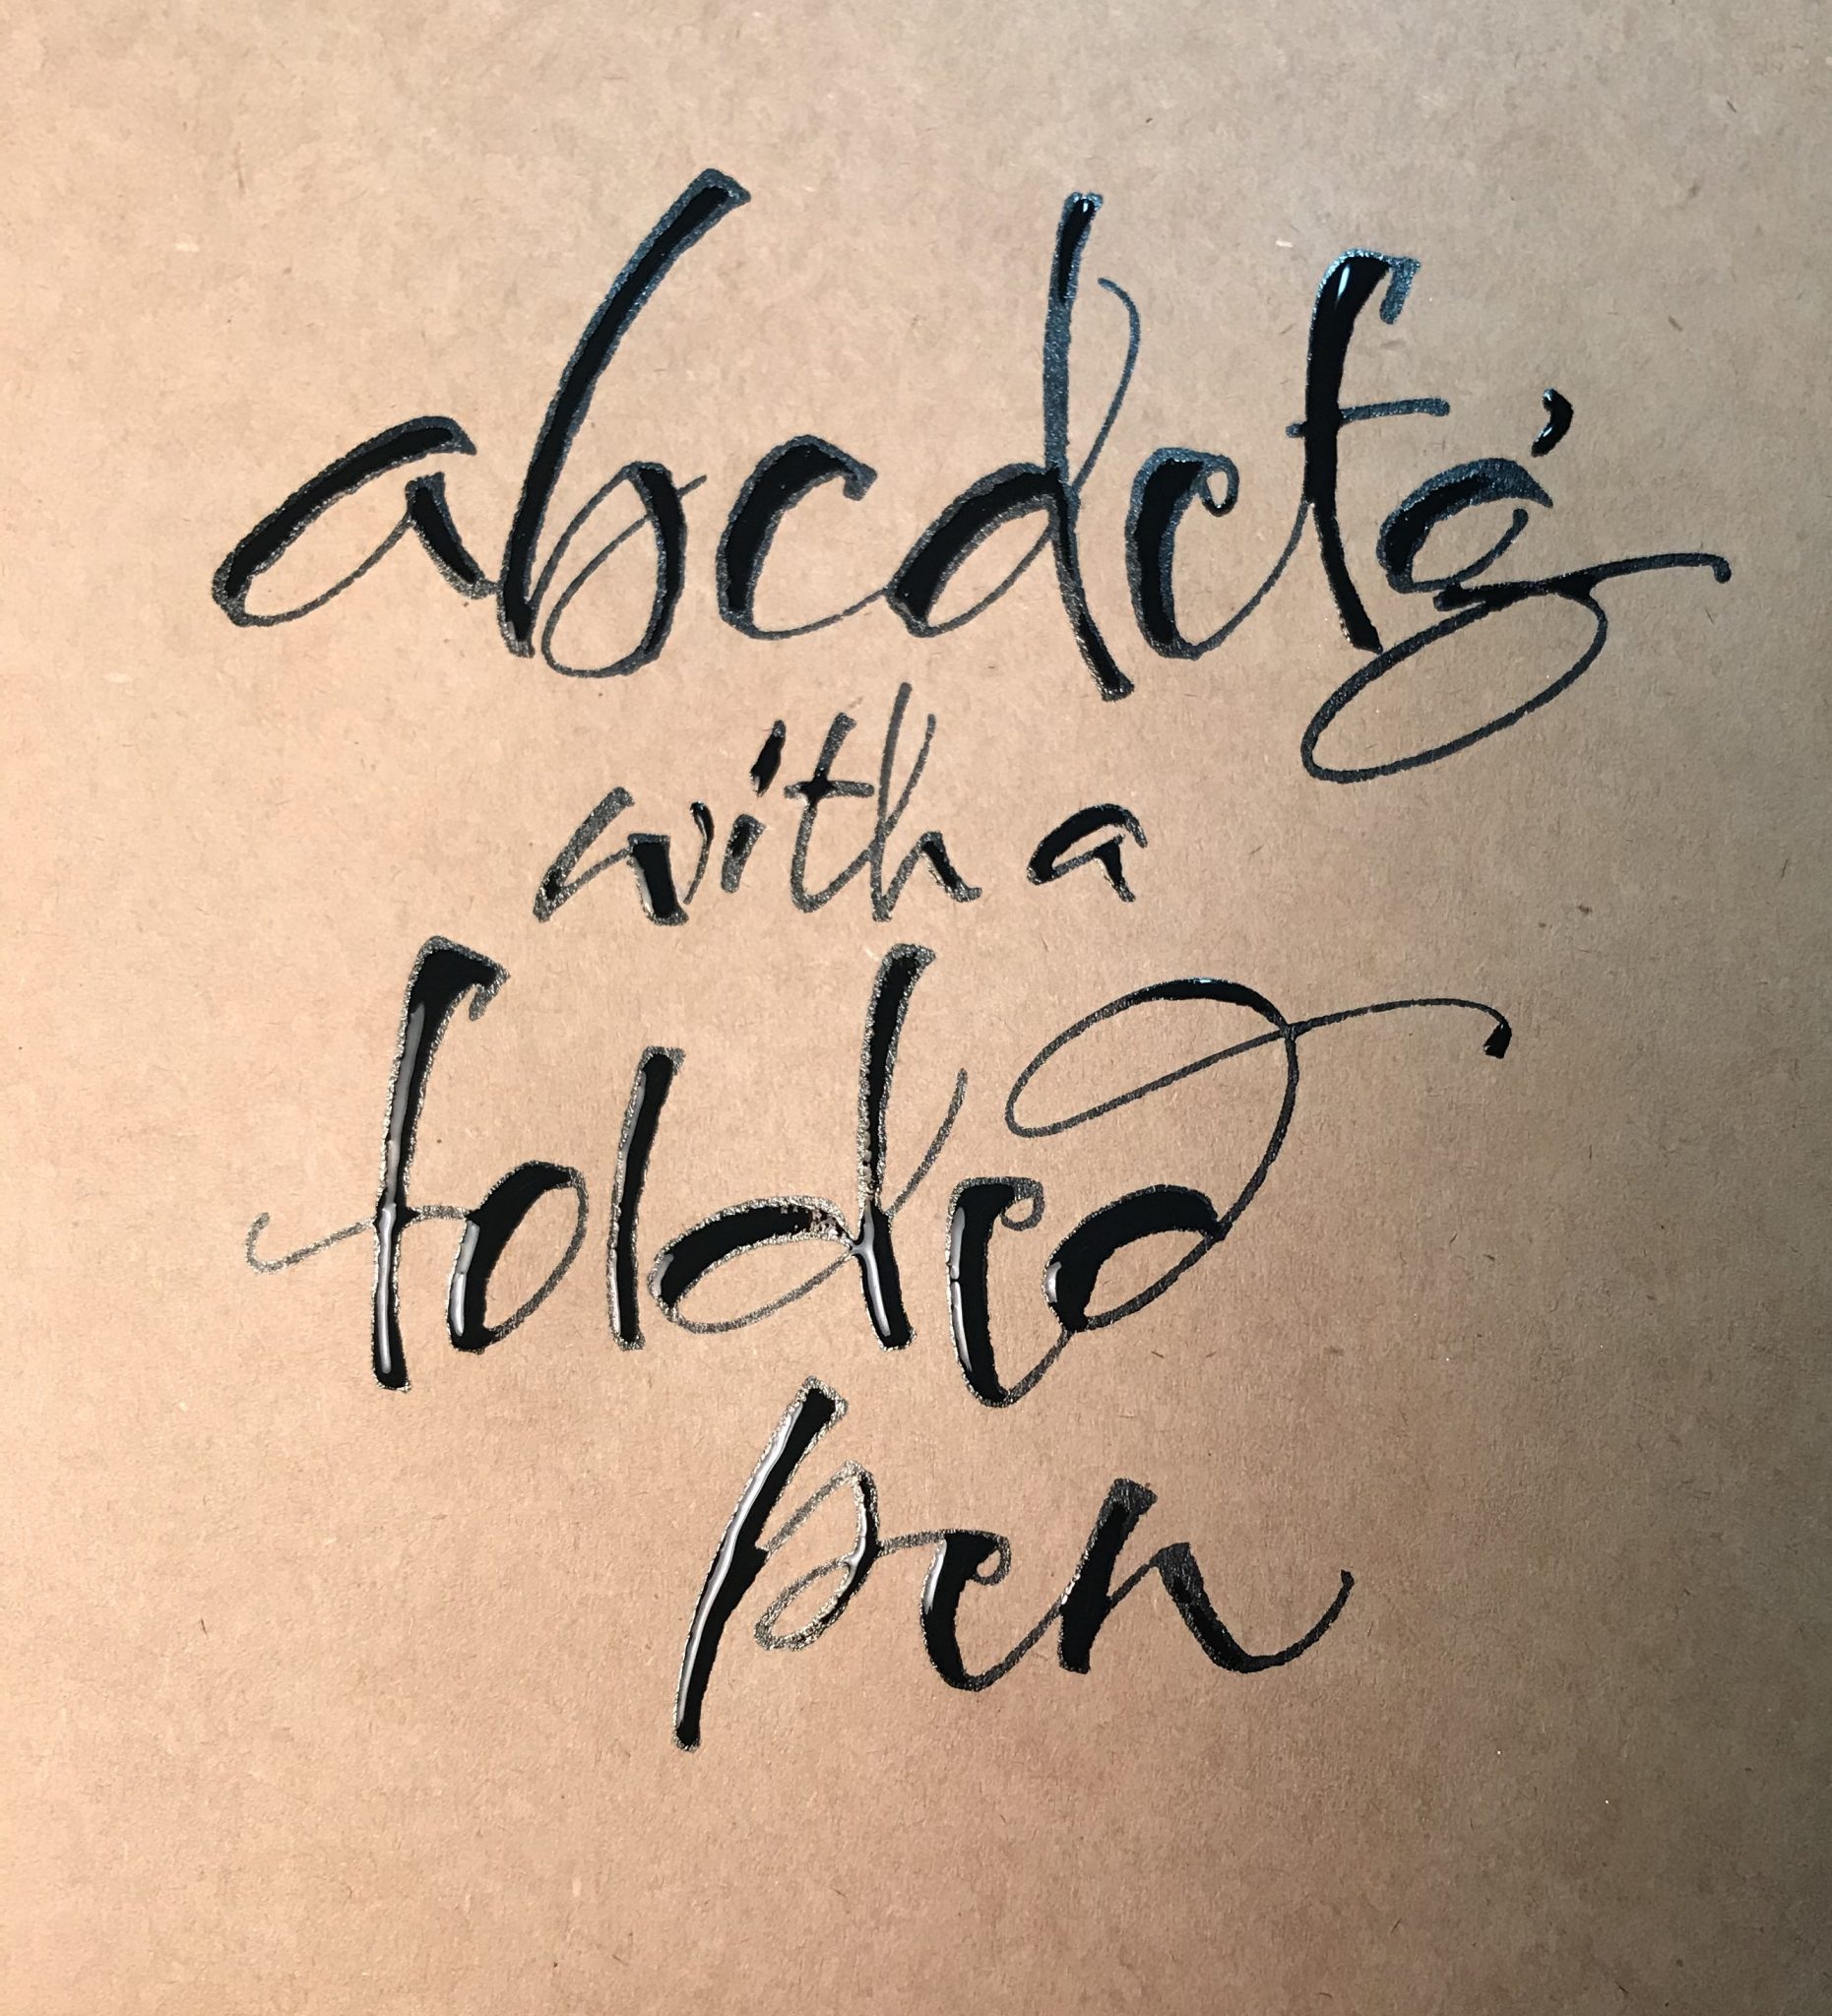 abcdefg
with a
folded
pen